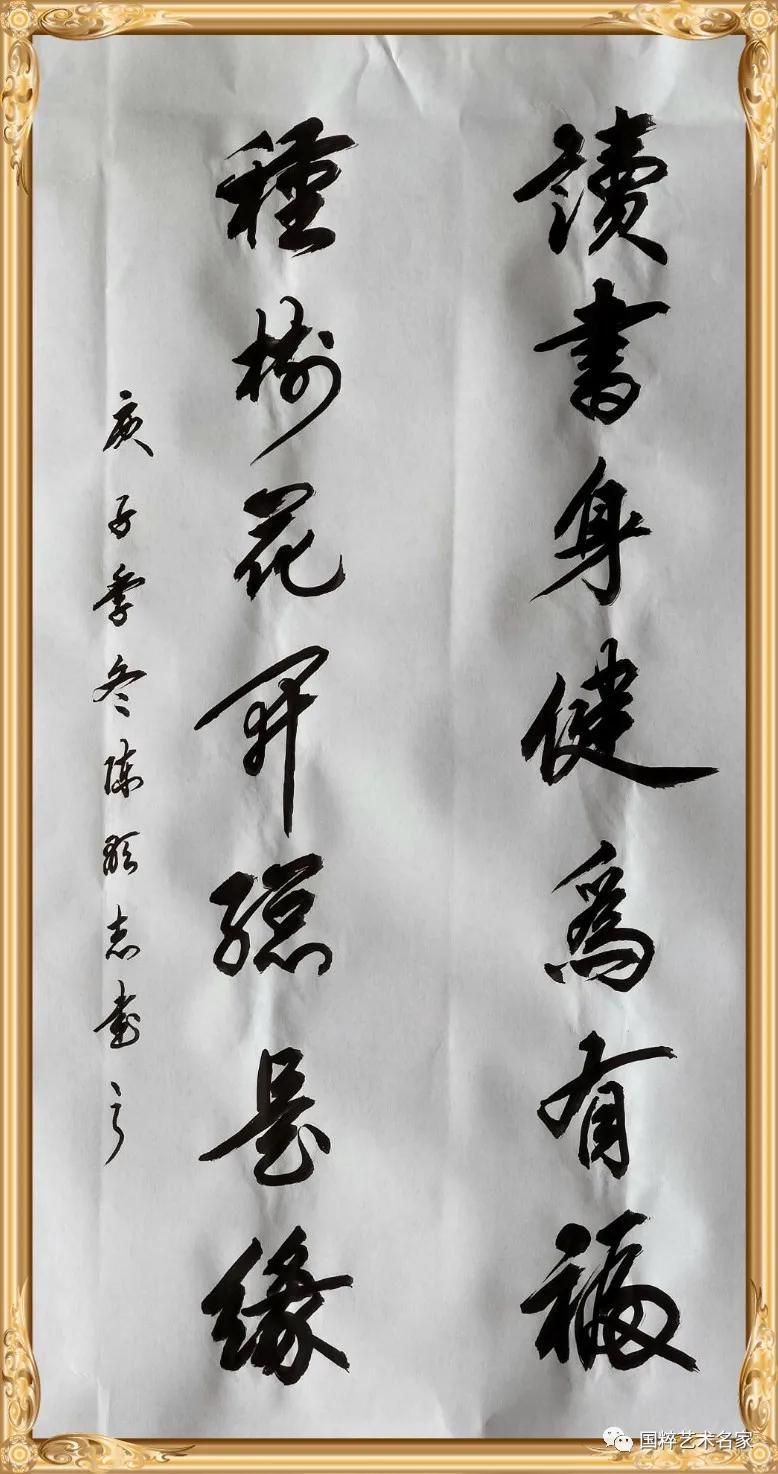 讀書身健爲有福
種樹花開總是緣
庚子季冬陈 志書
国粹艺术名家